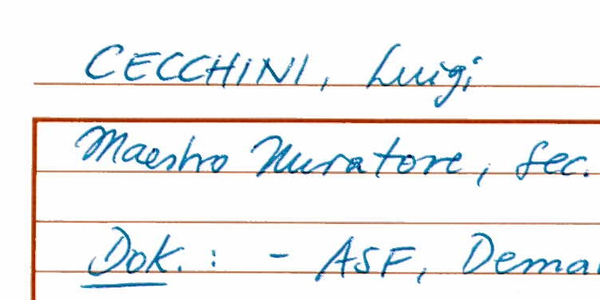 CECCHINI, Luigi
Maestro Muratore, sec.
Dok.: - ASF, Dema